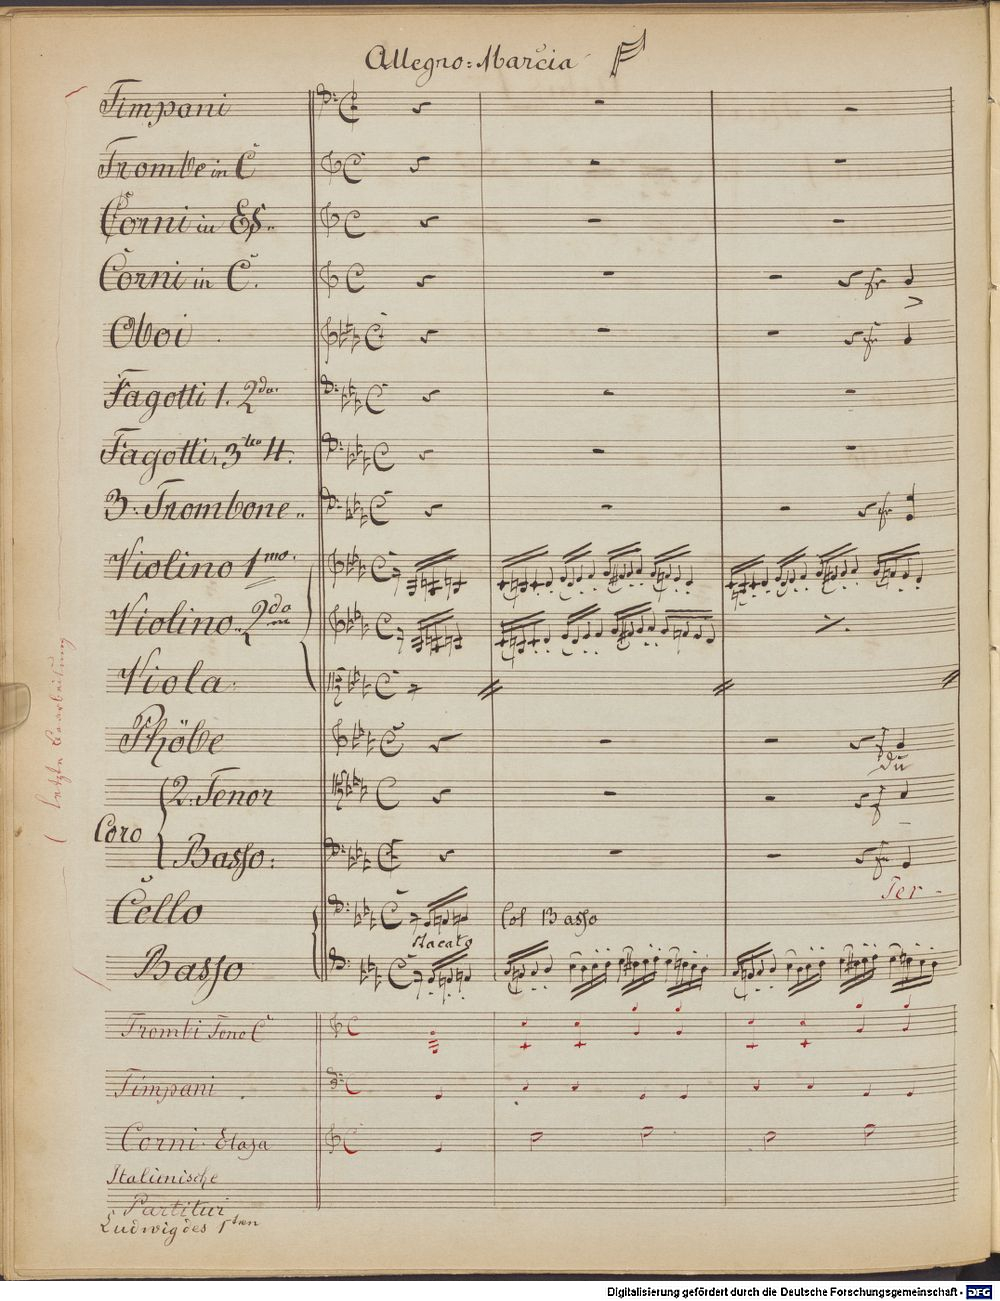 Allegro: Marcia F
Timpani
Trombe in C
Corni in Es.
Corni in C.
Oboi
Fagotti 1. 2do.
Fagotti. 3tio 4.
3. Trombone.
Violino 1mo.
Violino. 2do
Viola.
Phöbe
du
2. Tenor
Coro
Basso:
Ter -
Cello
Col Basso
stacato
Basso
(letzte Bearbeitung
Trombi Tono C
Timpani
Corni. Elafa
Italienische
Partitur
Ludwig des 1sten
Digitalisierung gefördert durch die Deutsche Forschungsgemeinschaft - DFG